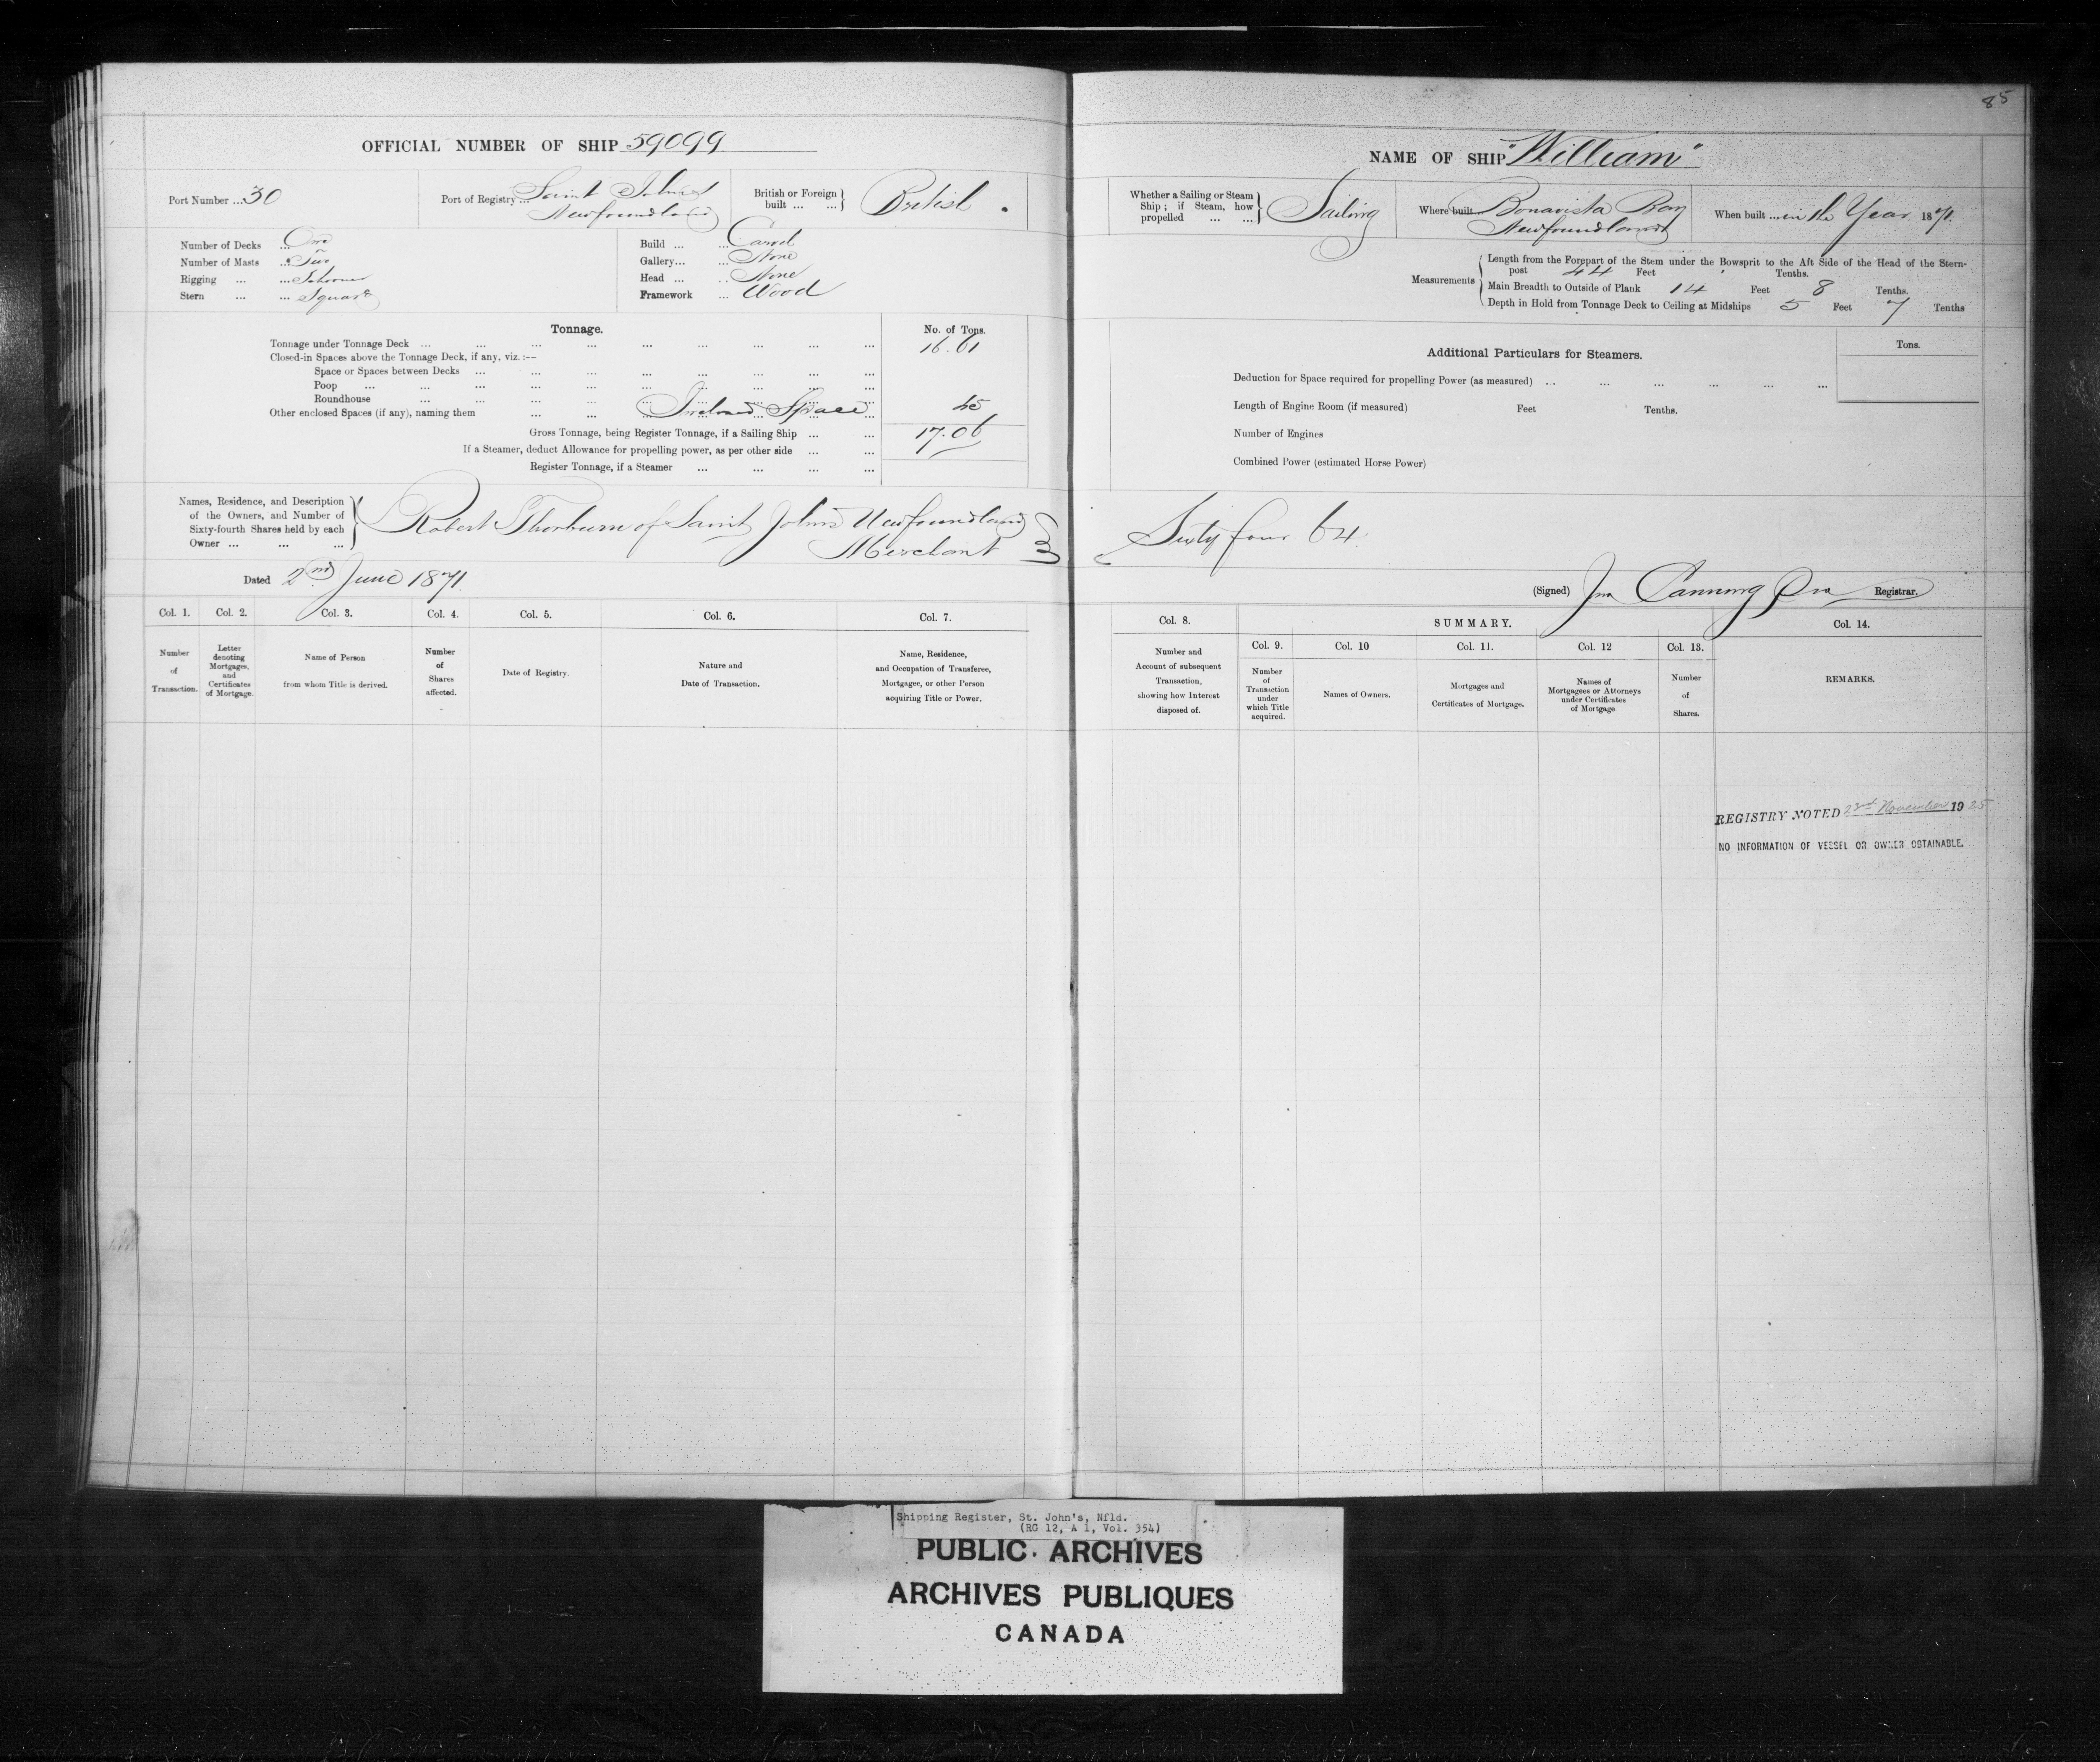 85
OFFICIAL NUMBER OF SHIP 59099
Port Number ... 30
Port of Registry ... Saint John's
Newfoundland
British or Foreign built ... ... } British
Number of Decks ... One
Number of Masts ... Two
Rigging ... ... Schooner
Stern ... ... Square
Build ... ... Carvel
Gallery... ... None
Head ... ... None
Framework ... Wood
Tonnage.
No. of Tons.
Tonnage under Tonnage Deck ... ... ... ... ... ... ... ... ... 16.61
Closed-in Spaces above the Tonnage Deck, if any, viz.:—
Space or Spaces between Decks ... ... ... ... ... ... ... ...
Poop ... ... ... ... ... ... ... ... ... ...
Roundhouse ... ... ... ... ... ... ... ... ...
Other enclosed Spaces (if any), naming them ... ... Space ... 45
Gross Tonnage, being Register Tonnage, if a Sailing Ship ... ... 17.06
If a Steamer, deduct Allowance for propelling power, as per other side ... ...
Register Tonnage, if a Steamer ... ... ... ...
Names, Residence, and Description
of the Owners, and Number of
Sixty-fourth Shares held by each
Owner ... ... ...
Robert Thorburn of Saint John's Newfoundland
Merchant
Dated 2nd June 1871.
Col. 1.
Number
of
Transaction.
Col. 2.
Letter
denoting
Mortgages,
and
Certificates
of Mortgage.
Col. 3.
Name of Person
from whom Title is derived.
Col. 4.
Number
of
Shares
affected.
Col. 5.
Date of Registry.
Col. 6.
Nature and
Date of Transaction.
Col. 7.
Name, Residence,
and Occupation of Transferee,
Mortgagee, or other Person
acquiring Title or Power.
NAME OF SHIP "William"
Whether a Sailing or Steam
Ship; if Steam, how
propelled ... ... } Sailing
Where built ... Bonavista Bay
Newfoundland
When built ... in the Year 1871.
Measurements
Length from the Forepart of the Stem under the Bowsprit to the Aft Side of the Head of the Stern-
post 44 Feet Tenths.
Main Breadth to Outside of Plank 14 Feet 8 Tenths.
Depth in Hold from Tonnage Deck to Ceiling at Midships 5 Feet 7 Tenths
Additional Particulars for Steamers.
Tons.
Deduction for Space required for propelling Power (as measured) ... ... ... ... ... ...
Length of Engine Room (if measured) Feet Tenths.
Number of Engines
Combined Power (estimated Horse Power)
Sixty four 64.
(Signed) Jno Canning Registrar.
Col. 8.
Number and
Account of subsequent
Transaction,
showing how Interest
disposed of.
SUMMARY.
Col. 9.
Number
of
Transaction
under
which Title
acquired.
Col. 10
Names of Owners.
Col. 11.
Mortgages and
Certificates of Mortgage.
Col. 12
Names of
Mortgagees or Attorneys
under Certificates
of Mortgage.
Col. 13.
Number
of
Shares.
Col. 14.
REMARKS.
REGISTRY NOTED 23rd November 1925
NO INFORMATION OF VESSEL OR OWNER OBTAINABLE.
Shipping Register, St. John's, Nfld.
(RG 12, A 1, Vol. 354)
PUBLIC ARCHIVES
ARCHIVES PUBLIQUES
CANADA